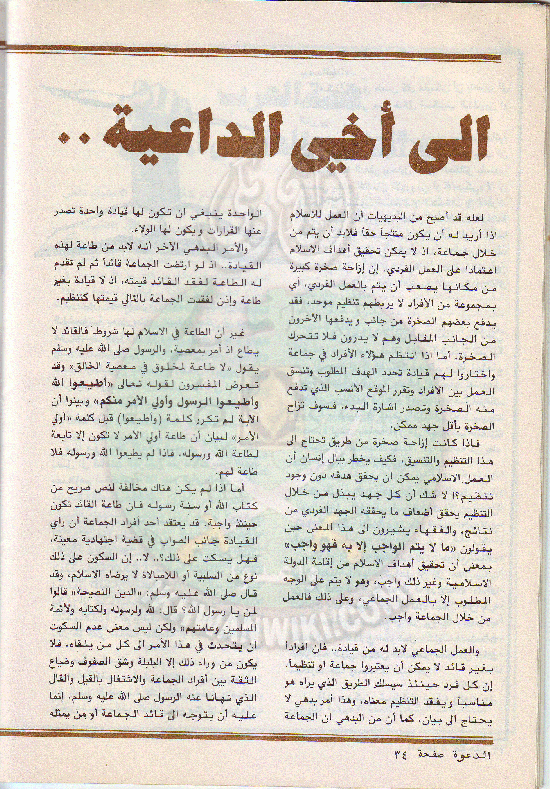 الى أخي الداعية ..
لعله قد أصبح من البديهيات أن العمل للاسلام
اذا أريد له أن يكون منتجاً حقاً فلابد أن يتم من
خلال جماعة، اذ لا يمكن تحقيق أهداف الاسلام
اعتماداً على العمل الفردي. إن إزاحة صخرة كبيرة
من مكانها يصعب أن يتم بالعمل الفردي، أي
بمجموعة من الأفراد لا يربطهم تنظيم موحد، فقد
يدفع بعضهم الصخرة من جانب ويدفعها الآخرون
من الجانب المقابل وهم لا يدرون فلا تتحرك
الصخرة. أما اذا انتظم هؤلاء الأفراد في جماعة
واختاروا لهم قيادة تحدد الهدف المطلوب وتنسق
العمل بين الافراد وتقرر الموقع الأنسب الذي تدفع
منه الصخرة وتصدر اشارة البدء، فسوف تزاح
الصخرة بأقل جهد ممكن.
فاذا كانت إزاحة صخرة من طريق تحتاج الى
هذا التنظيم والتنسيق، فكيف يخطر ببال إنسان أن
العمل الاسلامي يمكن ان يحقق هدفه دون وجود
تنظيم؟! لا شك أن كل جهد يبذل من خلال
التنظيم يحقق أضعاف ما يحققه الجهد الفردي من
نتائج، والفقهاء يشيرون الى هذا المعنى حين
يقولون «ما لا يتم الواجب إلا به فهو واجب»
بمعنى أن تحقيق أهداف الاسلام من إقامة الدولة
الاسلامية وغير ذلك واجب، وهو لا يتم على الوجه
المطلوب إلا بالعمل الجماعي، وعلى ذلك فالعمل
من خلال الجماعة واجب.
والعمل الجماعي لابد له من قيادة.. فان افراداً
بغير قائد لا يمكن أن يعتبروا جماعة او تنظيماً.
إن كل فرد حينئذ سيسلك الطريق الذي يراه هو
مناسباً ويفقد التنظيم معناه، وهذا أمر بدهي لا
يحتاج الى بيان، كما أن من البدهي ان الجماعة
الواحدة ينبغي ان تكون لها قيادة واحدة تصدر
عنها القرارات ويكون لها الولاء.
والأمر البدهي الآخر أنه لابد من طاعة لهذه
القيادة.. اذ لو ارتضت الجماعة قائداً ثم لم تقدم
له الطاعة لفقد القائد قيمته، اذ لا قيادة بغير
طاعة واذن لفقدت الجماعة بالتالي قيمتها كتنظيم.
غير أن الطاعة في الاسلام لها شروط فالقائد لا
يطاع اذ أمر بمعصية، والرسول صلى الله عليه وسلم
يقول «لا طاعة لمخلوق في معصية الخالق» وقد
تعرض المفسرون لقوله تعالى «أطيعوا الله
وأطيعوا الرسول وأولي الأمر منكم» وبينوا أن
الآية لم تكرر كلمة (وأطيعوا) قبل كلمة «أولي
الأمر» لبيان أن طاعة أولي الأمر لا تكون إلا تابعة
لطاعة الله ورسوله، فاذا لم يطيعوا الله ورسوله فلا
طاعة لهم.
أما اذا لم يكن هناك مخالفة لنص صريح من
كتاب الله أو سنة رسوله فان طاعة القائد تكون
حينئذ واجبة. قد يعتقد أحد افراد الجماعة أن رأي
القيادة جانب الصواب في قضية اجتهادية معينة،
فهل يسكت على ذلك؟.. لا.. إن السكوت على ذلك
نوع من السلبية أو اللامبالاة لا يرضاه الاسلام، وقد
قال صلى الله عليه وسلم: «الدين النصيحة» قالوا
لمن يا رسول الله؟ قال: لله ولرسوله ولكتابه ولأئمة
المسلمين وعامتهم» ولكن ليس معنى عدم السكوت
أن يتحدث في هذا الأمر الى كل من يلقاه، فلا
يكون من وراء ذلك إلا البلبلة وشق الصفوف وضياع
الثقة بين أفراد الجماعة والاشتغال بالقيل والقال
الذي نهانا عنه الرسول صلى الله عليه وسلم، إنما
عليه أن يتوجه الى قائد الجماعة أو من يمثله
الدعوة صفحة ٣٤